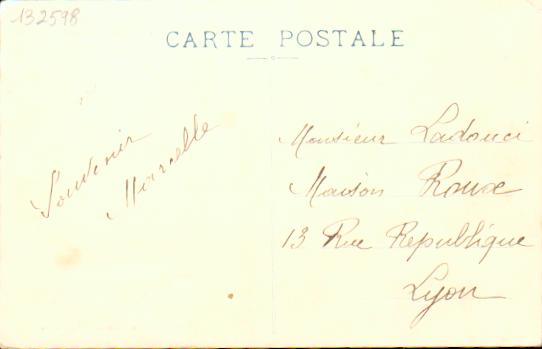 132598
CARTE POSTALE
Souvenir
Marcelle
Monsieur Ladouci
Maison Roux
13 Rue Republique
Lyon